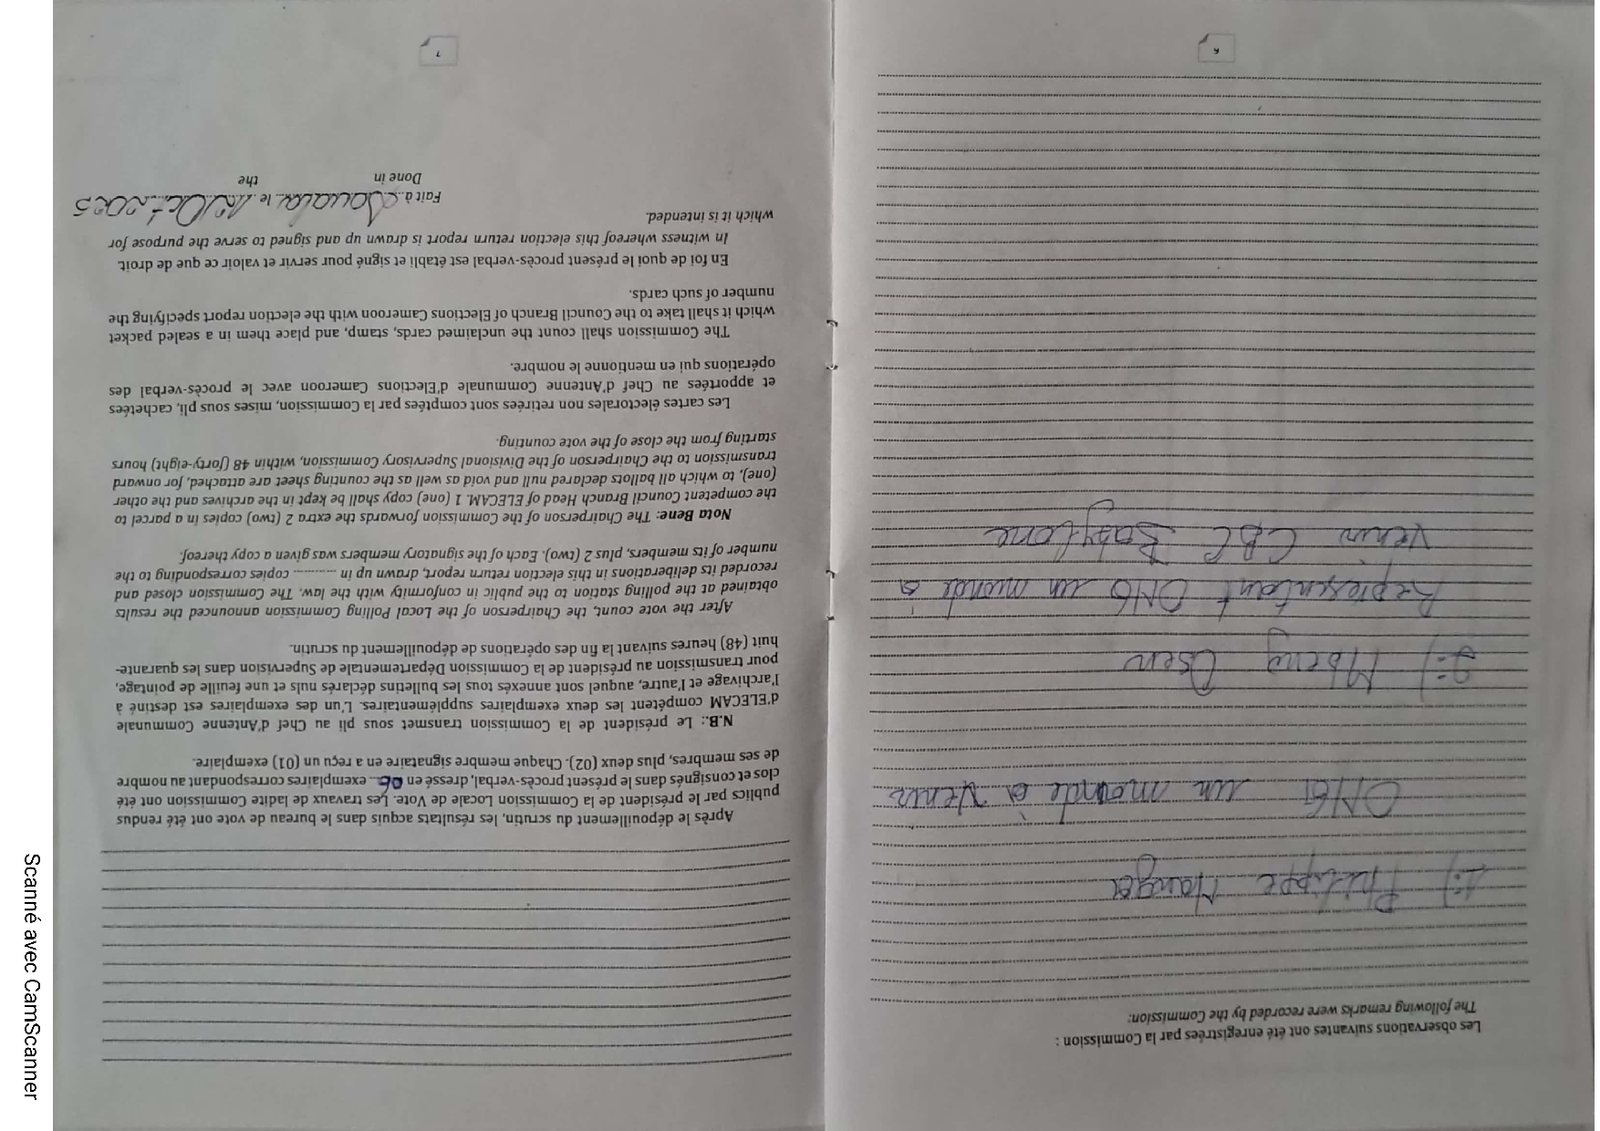 Les observations suivantes ont été enregistrées par la Commission :
The following remarks were recorded by the Commission:
1-) Philippe Manga
ONG un monde à venir
2-) Mbeng Osen
Représentant ONG un monde à
venir CBC Babylone
6
Après le dépouillement du scrutin, les résultats acquis dans le bureau de vote ont été rendus
publics par le président de la Commission Locale de Vote. Les travaux de ladite Commission ont été
clos et consignés dans le présent procès-verbal, dressé en 06 exemplaires correspondant au nombre
de ses membres, plus deux (02). Chaque membre signataire en a reçu un (01) exemplaire.
N.B.: Le président de la Commission transmet sous pli au Chef d'Antenne Communale
d'ELECAM compétent les deux exemplaires supplémentaires. L'un des exemplaires est destiné à
l'archivage et l'autre, auquel sont annexés tous les bulletins déclarés nuls et une feuille de pointage,
pour transmission au président de la Commission Départementale de Supervision dans les quarante-
huit (48) heures suivant la fin des opérations de dépouillement du scrutin.
After the vote count, the Chairperson of the Local Polling Commission announced the results
obtained at the polling station to the public in conformity with the law. The Commission closed and
recorded its deliberations in this election return report, drawn up in .......... copies corresponding to the
number of its members, plus 2 (two). Each of the signatory members was given a copy thereof.
Nota Bene: The Chairperson of the Commission forwards the extra 2 (two) copies in a parcel to
the competent Council Branch Head of ELECAM. 1 (one) copy shall be kept in the archives and the other
(one), to which all ballots declared null and void as well as the counting sheet are attached, for onward
transmission to the Chairperson of the Divisional Supervisory Commission, within 48 (forty-eight) hours
starting from the close of the vote counting.
Les cartes électorales non retirées sont comptées par la Commission, mises sous pli, cachetées
et apportées au Chef d'Antenne Communale d'Elections Cameroon avec le procès-verbal des
opérations qui en mentionne le nombre.
The Commission shall count the unclaimed cards, stamp, and place them in a sealed packet
which it shall take to the Council Branch of Elections Cameroon with the election report specifying the
number of such cards.
En foi de quoi le présent procès-verbal est établi et signé pour servir et valoir ce que de droit.
In witness whereof this election return report is drawn up and signed to serve the purpose for
which it is intended.
Fait à Douala le 12 Oct 2025
Done in the
7
Scanné avec CamScanner